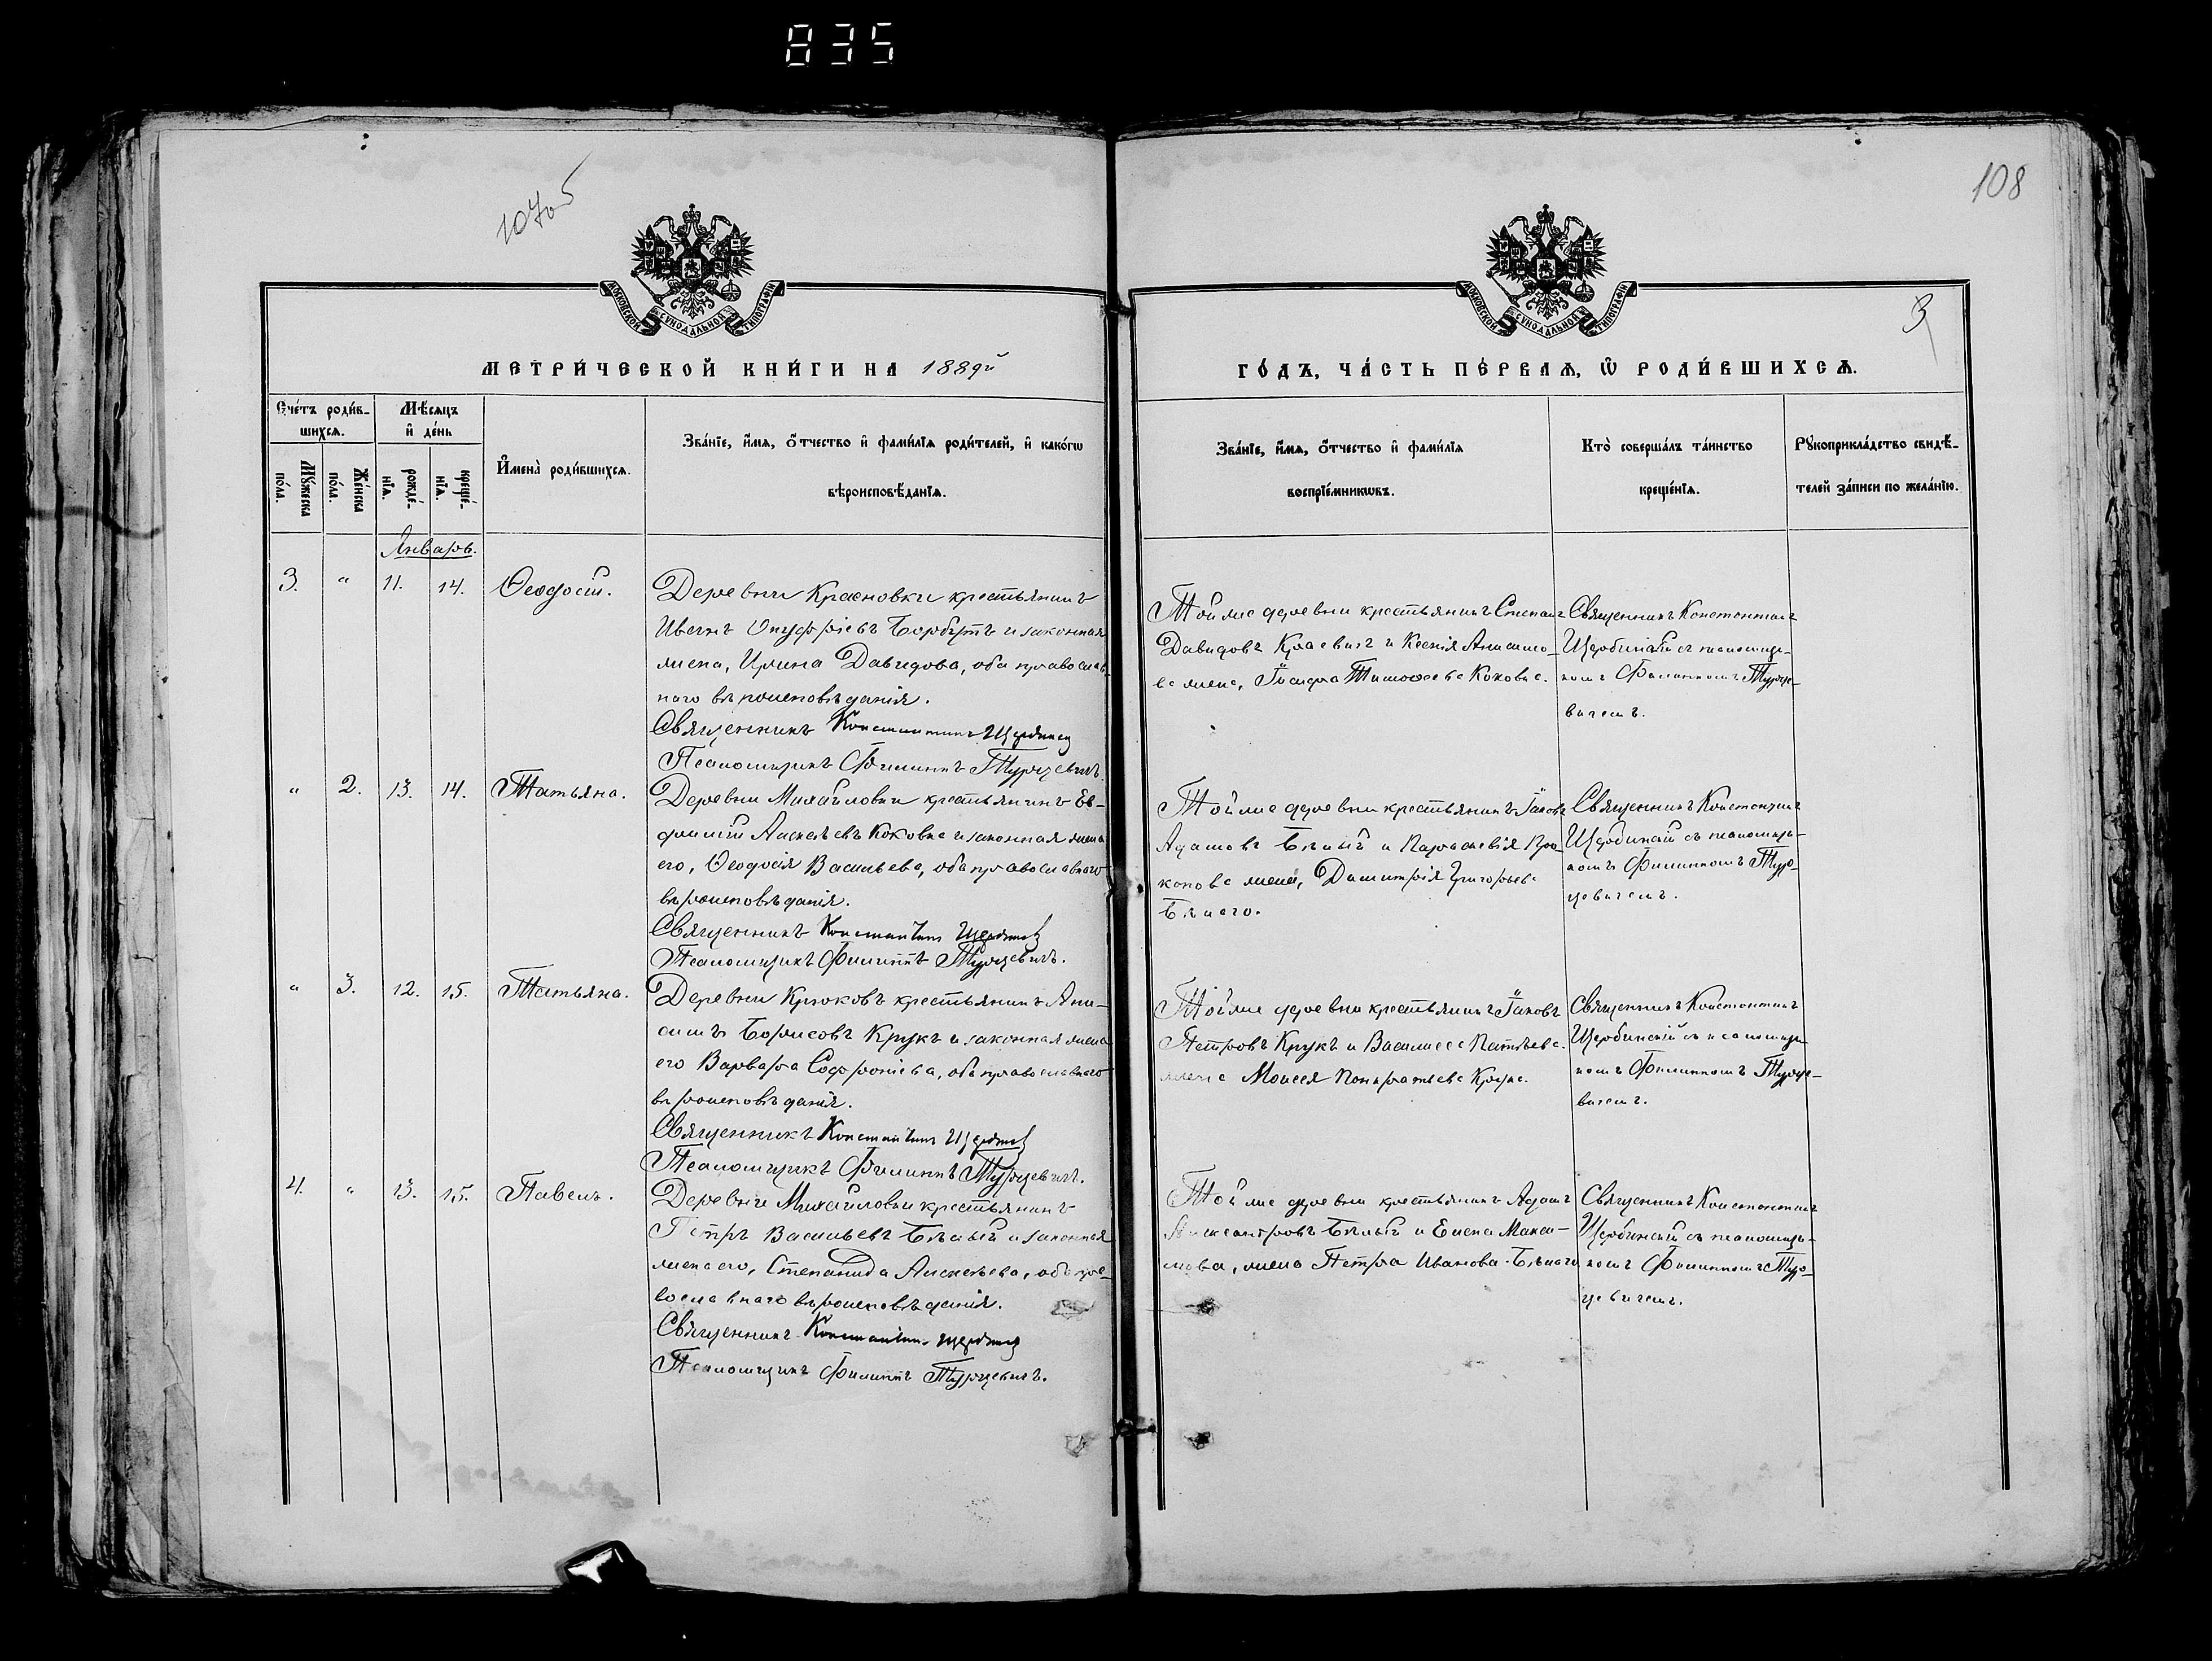 835
107об
108
3
МОСКОВСКОЙ СѴНОДАЛЬНОЙ ТИПОГРАФІИ
МОСКОВСКОЙ СѴНОДАЛЬНОЙ ТИПОГРАФІИ
МЕТРИ́ЧЕСКОЙ КНИ́ГИ НА 1889й
ГО́ДЪ, ЧА́СТЬ ПЕ́РВАѦ, Ѽ РОДИ́ВШИХСѦ.
Сче́тъ роди́в-
шихсѧ.
Мѣ́сѧцъ
и҆ де́нь
Мꙋ́жеска
по́ла.
Же́нска
по́ла.
рожде́-
нїѧ.
креще́-
нїѧ.
И҆мена̀ роди́вшихсѧ.
Зва́нїе, и҆́мѧ, о҆́тчество и҆ фами́лїѧ роди́телей, и҆ како́гѡ
вѣроисповѣ́данїѧ.
Зва́нїе, и҆́мѧ, о҆́тчество и҆ фами́лїѧ
воспрїе́мникѡвъ.
Кто̀ соверша́лъ та́инство
креще́нїѧ.
Рꙋкоприкла́дство свидѣ́-
телей за́писи по жела́нїю.
Январь.
3. " 11. 14. Ѳеодосій.
Деревни Красновки крестьянинъ
Иванъ Онуфріевъ Борбутъ и законная
жена, Ирина Давидова, оба православ-
наго вѣроисповѣданія.
Священникъ Константинъ Щербинскій
Псаломщикъ Филиппъ Турцевичъ.
Той же деревни крестьянинъ Степанъ
Давидовъ Краевичъ и Ксенія Анисимо-
ва жена, Іосифа Тимоѳеева Коковка.
Священникъ Константинъ
Щербинскій съ псаломщи-
комъ Филиппомъ Турце-
вичемъ.
" 2. 13. 14. Татьяна.
Деревни Михайловки крестьянинъ Ев-
фимій Алексѣевъ Коковка и законная жена
его, Ѳеодосія Васильева, оба православнаго
вѣроисповѣданія.
Священникъ Константинъ Щербинскій
Псаломщикъ Филиппъ Турцевичъ.
Той же деревни крестьянинъ Іаковъ
Адамовъ Бѣлый и Параскевія Про-
копова жена, Димитрія Григорьева
Бѣлаго.
Священникъ Константинъ
Щербинскій съ псаломщи-
комъ Филиппомъ Тур-
цевичемъ.
" 3. 12. 15. Татьяна.
Деревни Крюковъ крестьянинъ Ани-
симъ Борисовъ Крукъ и законная жена
его Варвара Софроніева, оба православнаго
вѣроисповѣданія.
Священникъ Константинъ Щербинскій
Псаломщикъ Филиппъ Турцевичъ.
Той же деревни крестьянинъ Іаковъ
Петровъ Крукъ и Василисса
жена Моисея Кондратьева Крука.
Священникъ Константинъ
Щербинскій съ псаломщи-
комъ Филиппомъ Турце-
вичемъ.
4. " 13. 15. Павелъ.
Деревни Михайловки крестьянинъ
Петръ Васильевъ Бѣлый и законная
жена его, Степанида Алексѣева, оба пра-
вославнаго вѣроисповѣданія.
Священникъ Константинъ Щербинскій
Псаломщикъ Филиппъ Турцевичъ.
Той же деревни крестьянинъ Адамъ
Александровъ Бѣлый и Елена Макси-
мова, жена Петра Иванова Бѣлаго
Священникъ Константинъ
Щербинскій съ псаломщи-
комъ Филиппомъ Тур-
цевичемъ.